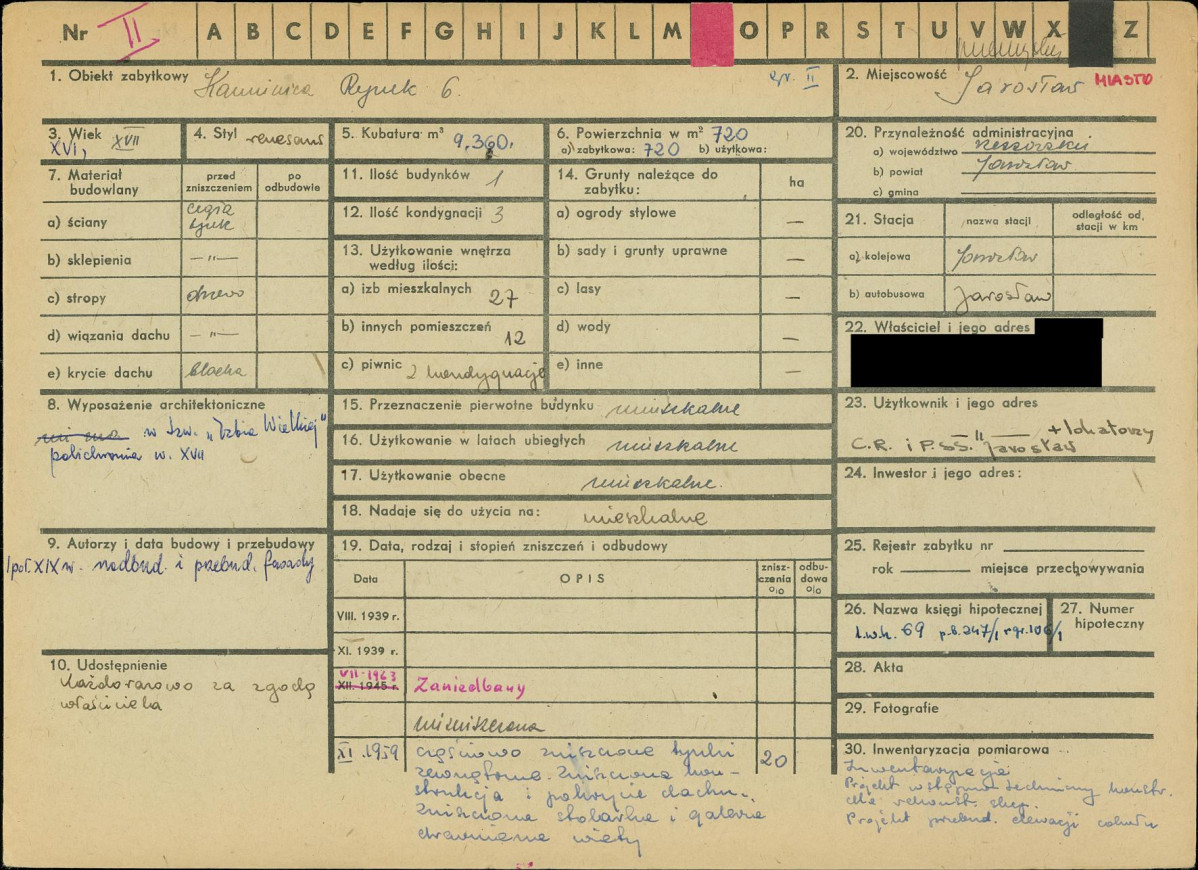 Nr II A B C D E F G H I J K L M O P R S T U V W X Z
1. Obiekt zabytkowy Kamienica Rynek 6. gr. II
2. Miejscowość Jarosław MIASTO
3. Wiek XVI, XVII
4. Styl renesans
5. Kubatura m³ 9.360.
6. Powierzchnia w m² 720
a) zabytkowa: 720 b) użytkowa:
7. Materiał budowlany
przed zniszczeniem
po odbudowie
a) ściany cegła tynk
b) sklepienia —"—
c) stropy drzewo
d) wiązania dachu —"—
e) krycie dachu blacha
8. Wyposażenie architektoniczne
w tzw. „Izbie Wielkiej"
polichromia w. XVII
9. Autorzy i data budowy i przebudowy
1 poł. XIX w. nadbud. i przebud. fasady
10. Udostępnienie
Każdorazowo za zgodą
właściciela
11. Ilość budynków 1
12. Ilość kondygnacji 3
13. Użytkowanie wnętrza
według ilości:
a) izb mieszkalnych 27
b) innych pomieszczeń 12
c) piwnic 2 kondygnacje
14. Grunty należące do
zabytku: ha
a) ogrody stylowe —
b) sady i grunty uprawne —
c) lasy —
d) wody —
e) inne —
15. Przeznaczenie pierwotne budynku mieszkalne
16. Użytkowanie w latach ubiegłych mieszkalne
17. Użytkowanie obecne mieszkalne.
18. Nadaje się do użycia na: mieszkalne
19. Data, rodzaj i stopień zniszczeń i odbudowy
Data OPIS zniszczenia % odbudowa %
VIII. 1939 r.
XI. 1939 r.
VII-1963
XII. 1945 r. Zaniedbany
niezniszczona
XI.1959 częściowo zniszczone tynki 20
zewnętrzne. Zniszczona kon-
strukcja i pokrycie dachu.
Zniszczona stolarka i galeria
drewniana wieży
20. Przynależność administracyjna
a) województwo rzeszowskie
b) powiat Jarosław
c) gmina
21. Stacja nazwa stacji odległość od, stacji w km
a) kolejowa Jarosław
b) autobusowa Jarosław
22. Właściciel i jego adres
23. Użytkownik i jego adres
+ lokatorzy
C.R. i P.SS. " Jarosław
24. Inwestor i jego adres:
25. Rejestr zabytku nr
rok miejsce przechowywania
26. Nazwa księgi hipotecznej
l.w.h. 69 p.b. 247/1
27. Numer
hipoteczny
28. Akta
29. Fotografie
30. Inwentaryzacja pomiarowa
Inwentaryzacja
Projekt wstępno techniczny konstr.
dla rekonst. sklep.
Projekt przebud. elewacji